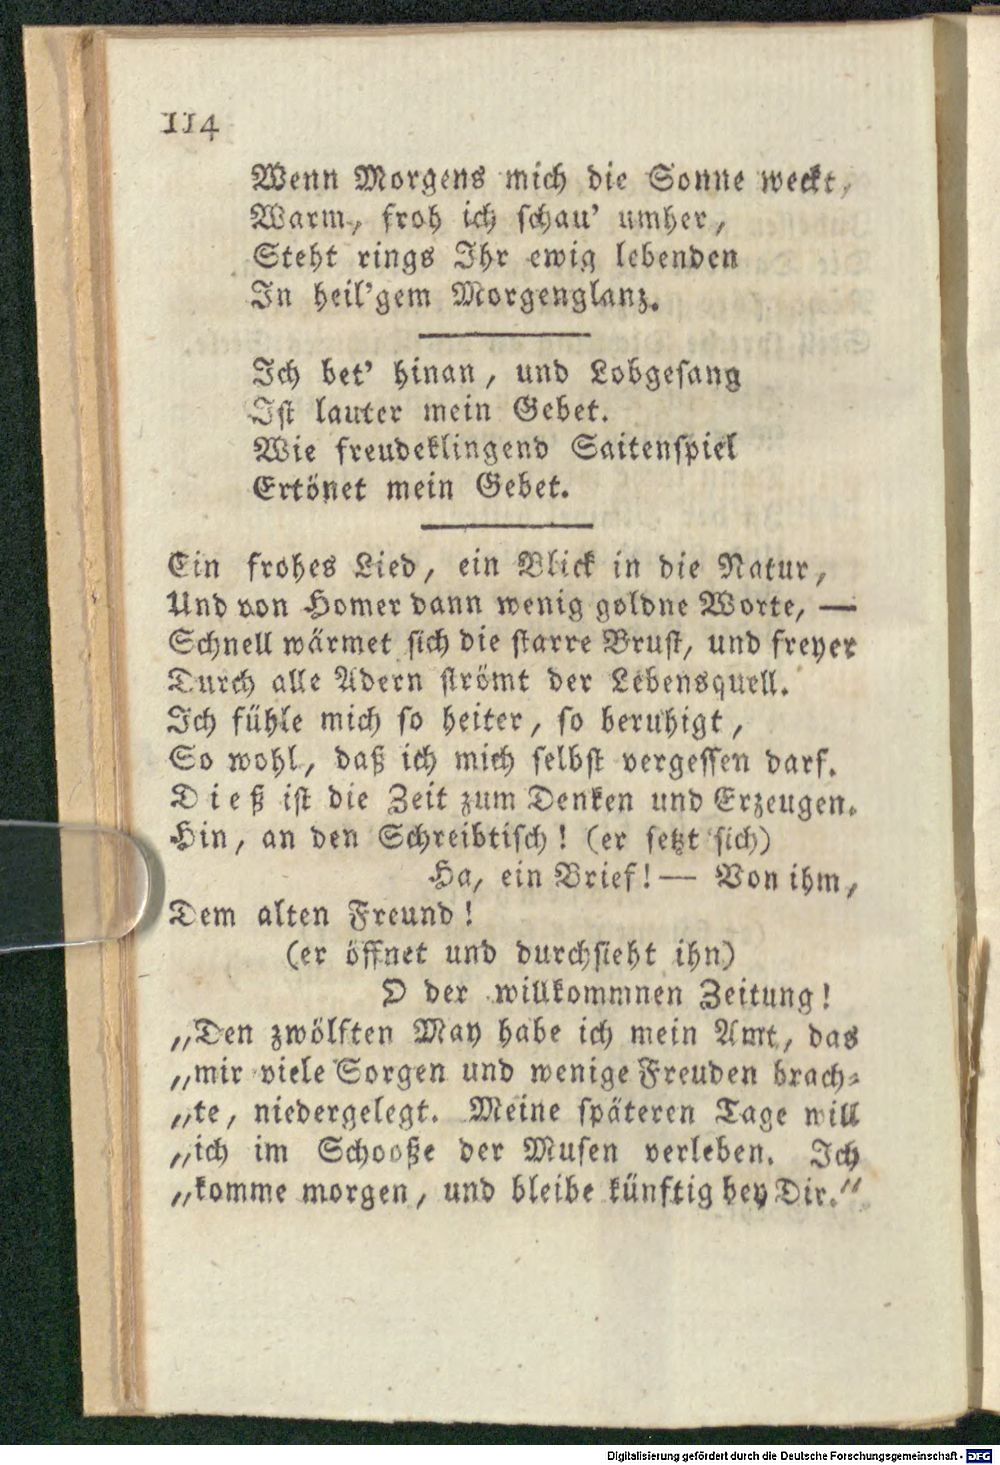 114
Wenn Morgens mich die Sonne weckt,
Warm, froh ich schau' umher,
Steht rings Ihr ewig lebenden
In heil'gem Morgenglanz.
Ich bet' hinan, und Lobgesang
Ist lauter mein Gebet.
Wie freudeklingend Saitenspiel
Ertönet mein Gebet.
Ein frohes Lied, ein Blick in die Natur,
Und von Homer dann wenig goldne Worte, —
Schnell wärmet sich die starre Brust, und freyer
Durch alle Adern strömt der Lebensquell.
Ich fühle mich so heiter, so beruhigt,
So wohl, daß ich mich selbst vergessen darf.
Dieß ist die Zeit zum Denken und Erzeugen.
Hin, an den Schreibtisch! (er setzt sich)
Ha, ein Brief! — Von ihm,
Dem alten Freund!
(er öffnet und durchsieht ihn)
O der willkommnen Zeitung!
„Den zwölften May habe ich mein Amt, das
„mir viele Sorgen und wenige Freuden brach-
„te, niedergelegt. Meine späteren Tage will
„ich im Schooße der Musen verleben. Ich
„komme morgen, und bleibe künftig bey Dir.“
Digitalisierung gefördert durch die Deutsche Forschungsgemeinschaft - DFG